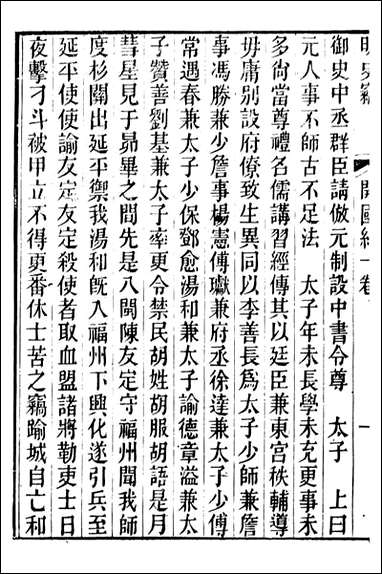 明史竊 開國紀一卷 一
御史中丞群臣請倣元制設中書令尊 太子 上曰
元人事不師古不足法 太子年未長學未充更事未
多尚當尊禮名儒講習經傳其以廷臣兼東宮秩輔導
毋庸別設府僚致生異同以李善長爲太子少師兼詹
事馮勝兼少詹事楊憲傅瓛兼府丞徐達兼太子少傅
常遇春兼太子少保鄧愈湯和兼太子諭德章溢兼太
子贊善劉基兼太子率更令禁民胡姓胡服胡語是月
彗星見于昴畢之間先是八閩陳友定守福州聞我師
度杉關出延平禦我湯和旣入福州下興化遂引兵至
延平使使諭友定友定殺使者取血盟諸將勒吏士日
夜擊刁斗被甲立不得更番休士苦之竊踰城自亡和